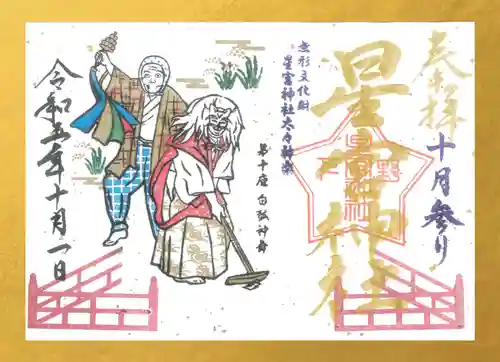 奉拝
十月参り
星宮神社
星宮神社
無形文化財
星宮神社太々神楽
第十座 白狐神舞
令和五年十月一日